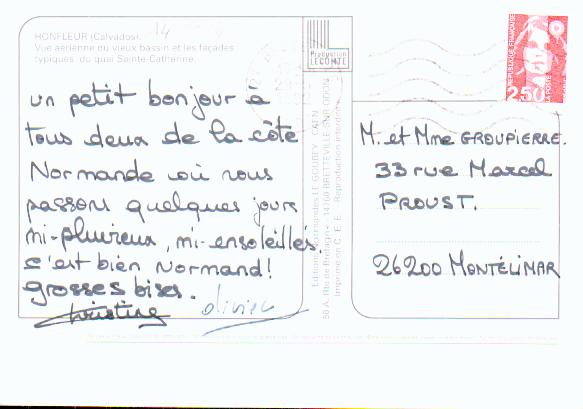 14
HONFLEUR (Calvados).
Vue aérienne du vieux bassin et les façades
typiques du quai Sainte-Catherine.
Production
LECONTE
REPUBLIQUE FRANÇAISE
2,50
LA POSTE
un petit bonjour à
tous deux de la côte
Normande où nous
passons quelques jours
mi-pluvieux, mi-ensoleillés.
c'est bien Normand!
grosses bises.
Christine Olivier
M. et Mme GROUPIERRE.
33 rue Marcel
PROUST.
26200 MONTÉLIMAR
LE GOUBEY - CAEN
56 A, Rte de Bretagne - 14760 BRETTEVILLE-SUR-ODON
Imprimé en C.E.E. - Reproduction interdite